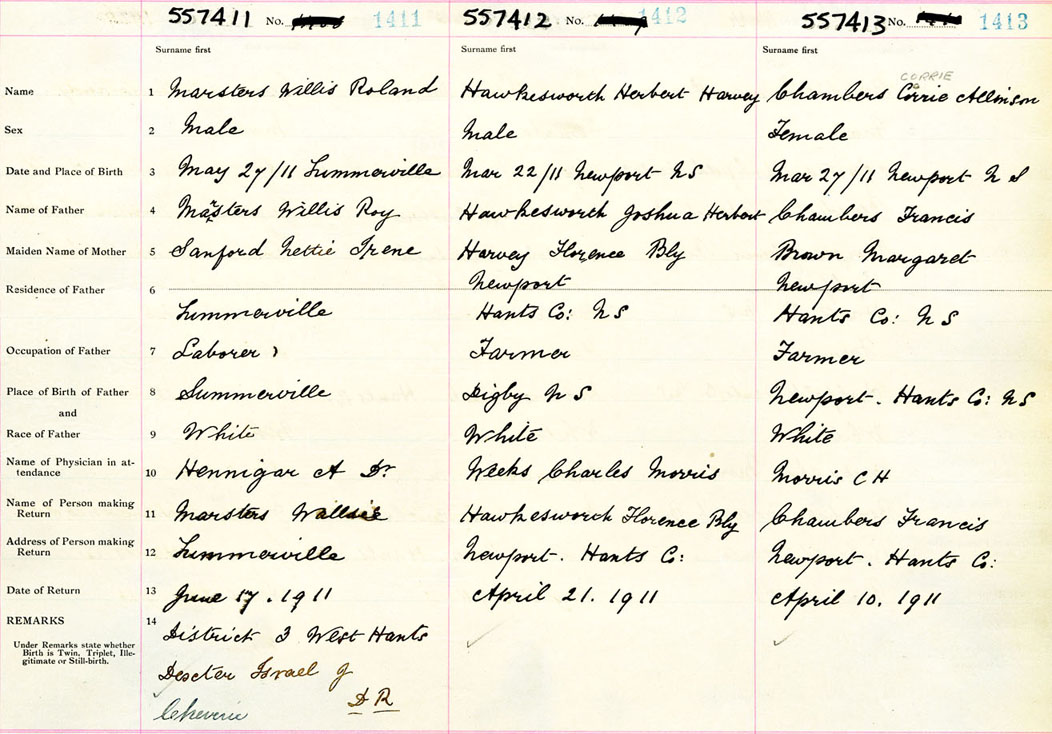 557411 No. 1411 557412 No. 1412 557413 No. 1413
Surname first Surname first Surname first
CORRIE
Name 1 Marsters Willis Roland Hawkesworth Herbert Harvey Chambers Corrie Allinson
Sex 2 Male Male Female
Date and Place of Birth 3 May 27/11 Summerville Mar 22/11 Newport NS Mar 27/11 Newport N S
Name of Father 4 Marsters Willis Roy Hawkesworth Joshua Herbert Chambers Francis
Maiden Name of Mother 5 Sanford Nettie Irene Harvey Florence Bly Brown Margaret
Residence of Father 6 Newport Newport
Summerville Hants Co: NS Hants Co: NS
Occupation of Father 7 Laborer Farmer Farmer
Place of Birth of Father 8 Summerville Digby NS Newport. Hants Co: NS
and
Race of Father 9 White White White
Name of Physician in at-
tendance 10 Hennigar A Dr Weeks Charles Morris Morris C H
Name of Person making
Return 11 Marsters Hawkesworth Florence Bly Chambers Francis
Address of Person making
Return 12 Summerville Newport. Hants Co: Newport. Hants Co:
Date of Return 13 June 17. 1911 April 21. 1911 April 10. 1911
REMARKS 14
District 3 West Hants
Under Remarks state whether
Birth is Twin, Triplet, Ille-
gitimate or Still-birth.
Israel J
D R
Cheverie